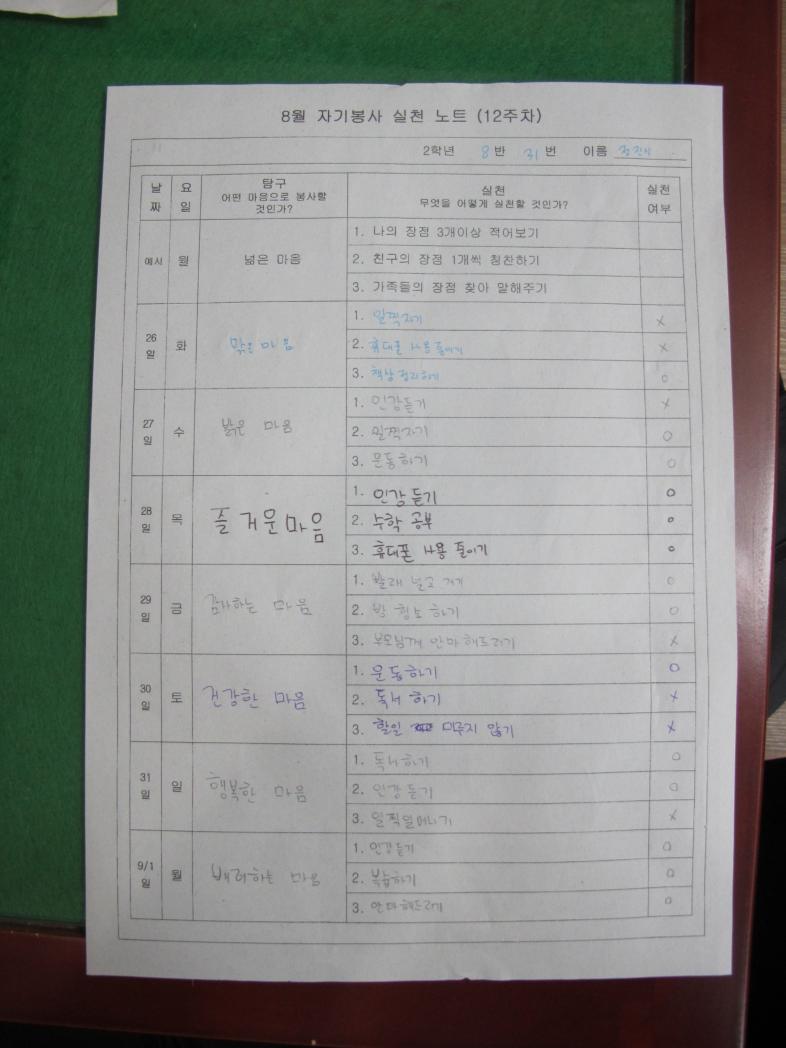 8월 자기봉사 실천 노트 (12주차)
2학년 8 반 31 번 이름
날짜 요일 탐구 어떤 마음으로 봉사할 것인가? 실천 무엇을 어떻게 실천할 것인가? 실천여부
예시 월 넓은 마음
1. 나의 장점 3개이상 적어보기
2. 친구의 장점 1개씩 칭찬하기
3. 가족들의 장점 찾아 말해주기
26일 화 맑은 마음
1. 일찍자기 X
2. 휴대폰 사용 줄이기 X
3. 책상정리하기 O
27일 수 밝은 마음
1. 인강듣기 X
2. 일찍자기 O
3. 운동하기 O
28일 목 즐거운마음
1. 인강 듣기 O
2. 수학 공부 O
3. 휴대폰 사용 줄이기 O
29일 금 감사하는 마음
1. 빨래 널고 개기 O
2. 방 청소 하기 O
3. 부모님께 안마 해드리기 X
30일 토 건강한 마음
1. 운동하기 O
2. 독서 하기 X
3. 할일 미루지 않기 X
31일 일 행복한 마음
1. 독서하기 O
2. 인강 듣기 O
3. 일찍일어나기 X
9/1일 월 배려하는 마음
1. 인강듣기 O
2. 복습하기 O
3. 안마해드리기 O